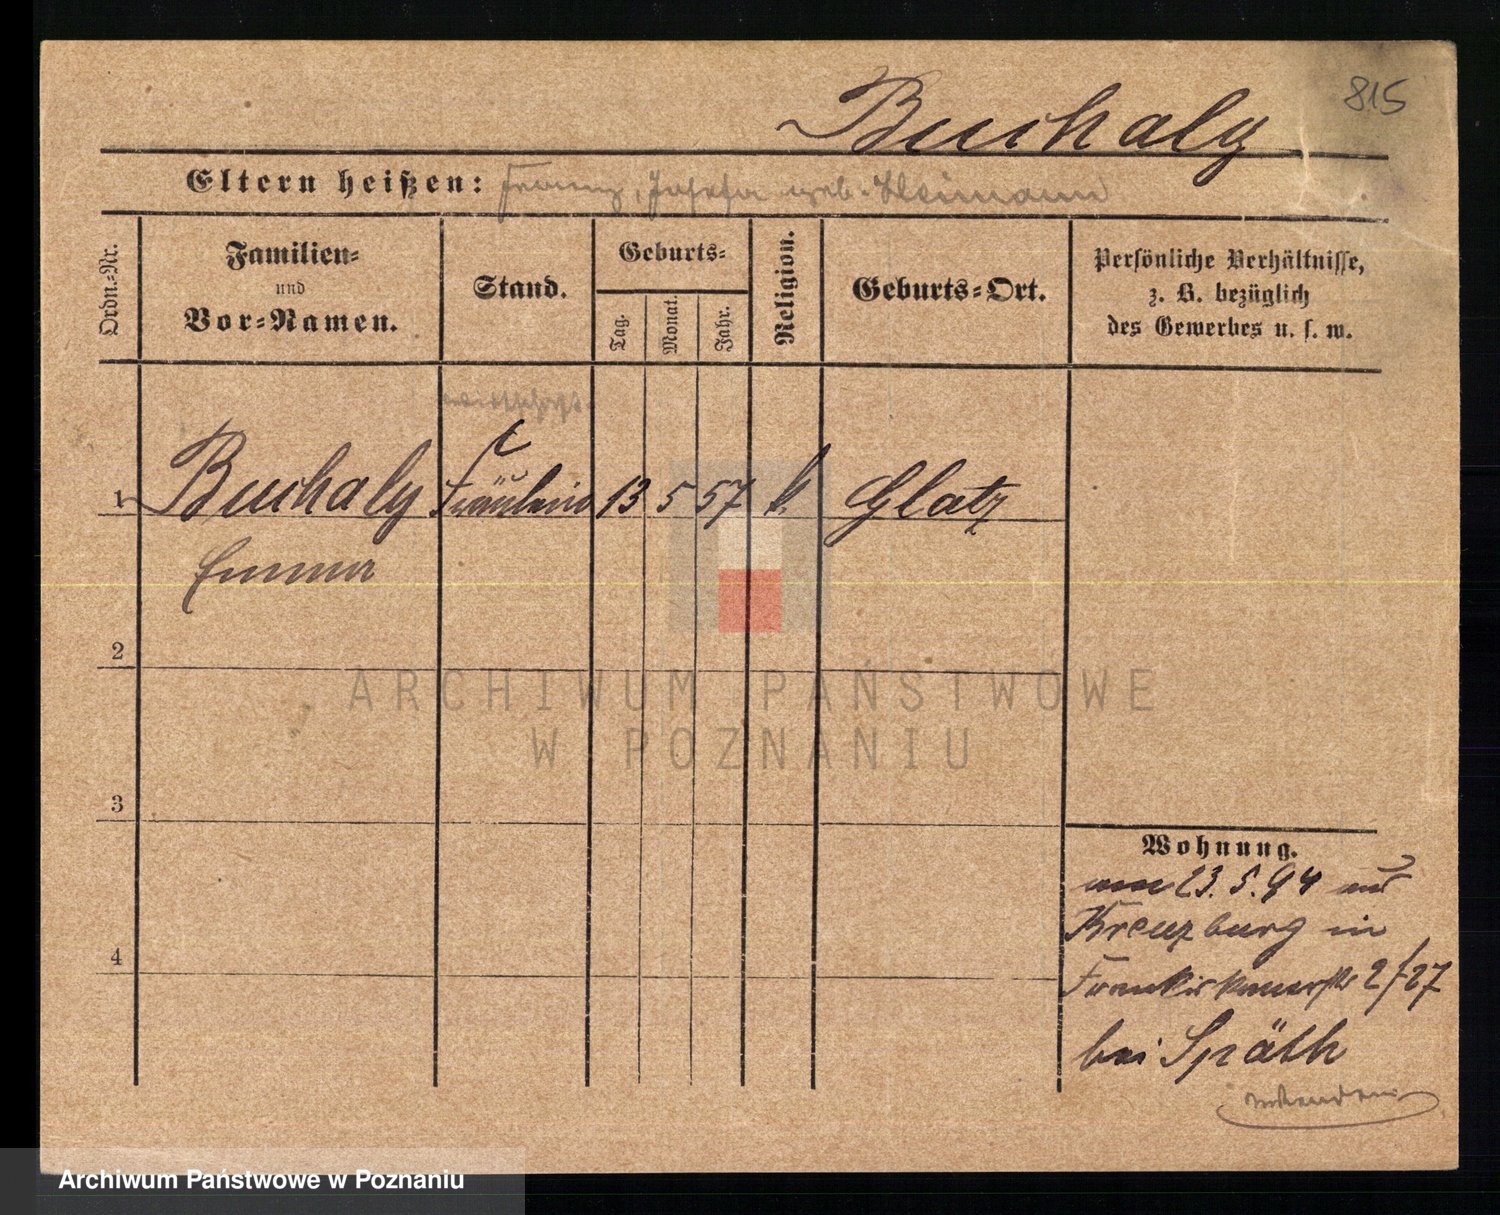 815
Buchaly
Eltern heißen: Franz, Josefa geb. Heimann
Ordn.-Nr.
Familien-
und
Vor-Namen.
Stand.
Geburts-
Tag.
Monat.
Jahr.
Religion.
Geburts-Ort.
Persönliche Verhältnisse,
z. B. bezüglich
des Gewerbes u. s. w.
1 Buchaly Fräulein 13 5 57 k. Glatz
Emma
2
3
4
Wohnung.
23.5.94 aus
Kreuzburg in
2/27
bei Späth
ARCHIWUM PAŃSTWOWE
W POZNANIU
Archiwum Państwowe w Poznaniu